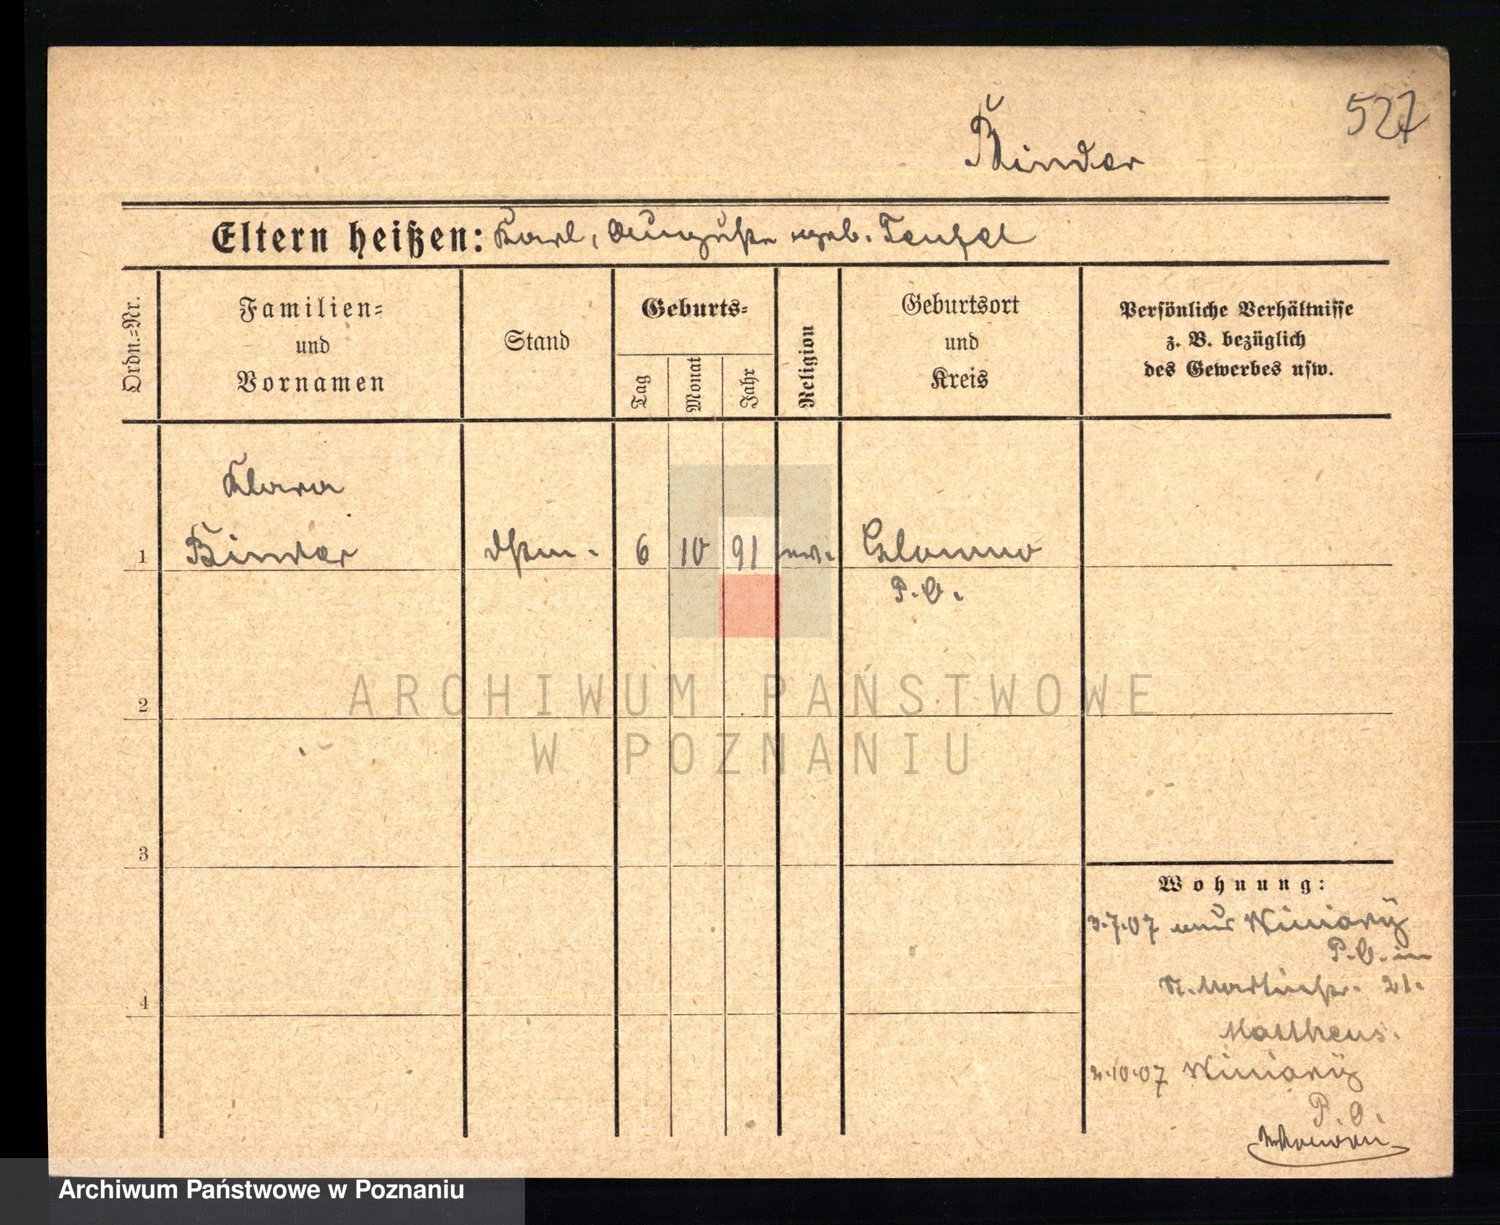 527
Binder
Eltern heißen: Karl, Auguste geb. Teufel
Ordn.-Nr.
Familien-
und
Vornamen
Stand
Geburts-
Tag
Monat
Jahr
Religion
Geburtsort
und
Kreis
Persönliche Verhältnisse
z. B. bezüglich
des Gewerbes usw.
Klara
1 Binder Dstm. 6 10 91 ev. Glowno
P. O.
ARCHIWUM PAŃSTWOWE
2
W POZNANIU
3
Wohnung:
3.7.07 aus Winiary
P. O. in
St. Martinstr. 21.
4
Mattheus.
2.10.07 Winiary
P. O.
Archiwum Państwowe w Poznaniu